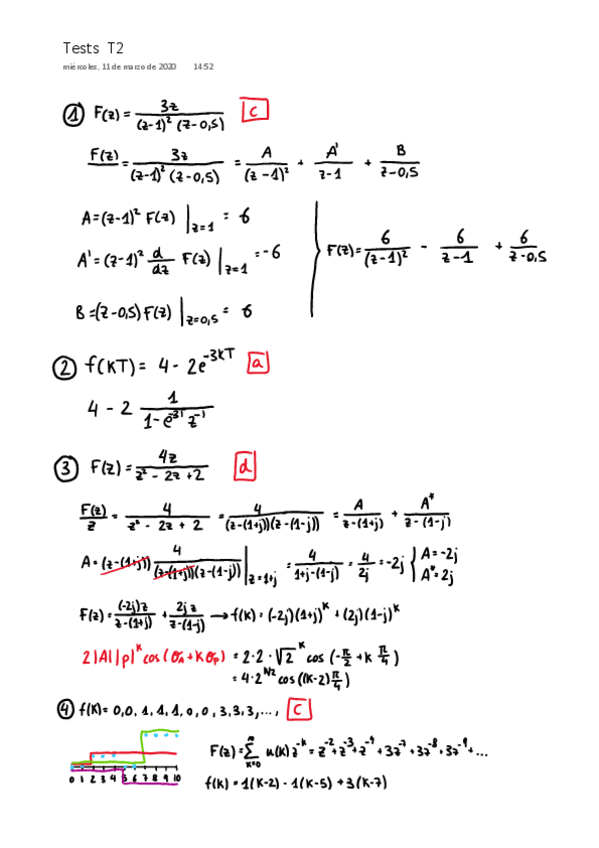 Tests T2
miércoles, 11 de marzo de 2020 14:52
① F(z) = 3z / (z-1)² (z-0,5) c
F(z) = 3z / (z-1)² (z-0,5) = A / (z-1)² + A' / z-1 + B / z-0,5
A = (z-1)² F(z) |z=1 = 6
A' = (z-1)² d/dz F(z) |z=1 = -6
F(z) = 6 / (z-1)² - 6 / z-1 + 6 / z-0,5
B = (z-0,5) F(z) |z=0,5 = 6
② f(KT) = 4 - 2e^-3KT a
4 - 2 1 / 1-e^-3T z^-1
③ F(z) = 4z / z² - 2z + 2 d
F(z)/z = 4 / z² - 2z + 2 = 4 / (z-(1+j))(z-(1-j)) = A / z-(1+j) + A* / z-(1-j)
A = (z-(1+j)) 4 / (z-(1+j))(z-(1-j)) |z=1+j = 4 / 1+j-(1-j) = 4 / 2j = -2j { A = -2j
A* = 2j
F(z) = (-2j)z / z-(1+j) + 2j z / z-(1-j) → f(k) = (-2j)(1+j)^k + (2j)(1-j)^k
2|A||p|^k cos(θA + kθp) = 2·2·√2^k cos(-π/2 + k π/4)
= 4·2^k/2 cos((k-2)π/4)
④ f(k) = 0,0,1,1,1,0,0,3,3,3,..., c
F(z) = Σ k=0 ∞ u(k) z^-k = z^-2 + z^-3 + z^-4 + 3z^-7 + 3z^-8 + 3z^-9 + ...
0 1 2 3 4 5 6 7 8 9 10
f(k) = 1(k-2) - 1(k-5) + 3(k-7)